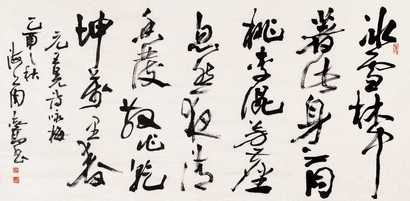 冰雪林中
著此身不同
桃李混芳塵
忽然一夜清
香發散作乾
坤萬里春
元王冕詩咏梅
乙酉之秋
海上周志高書